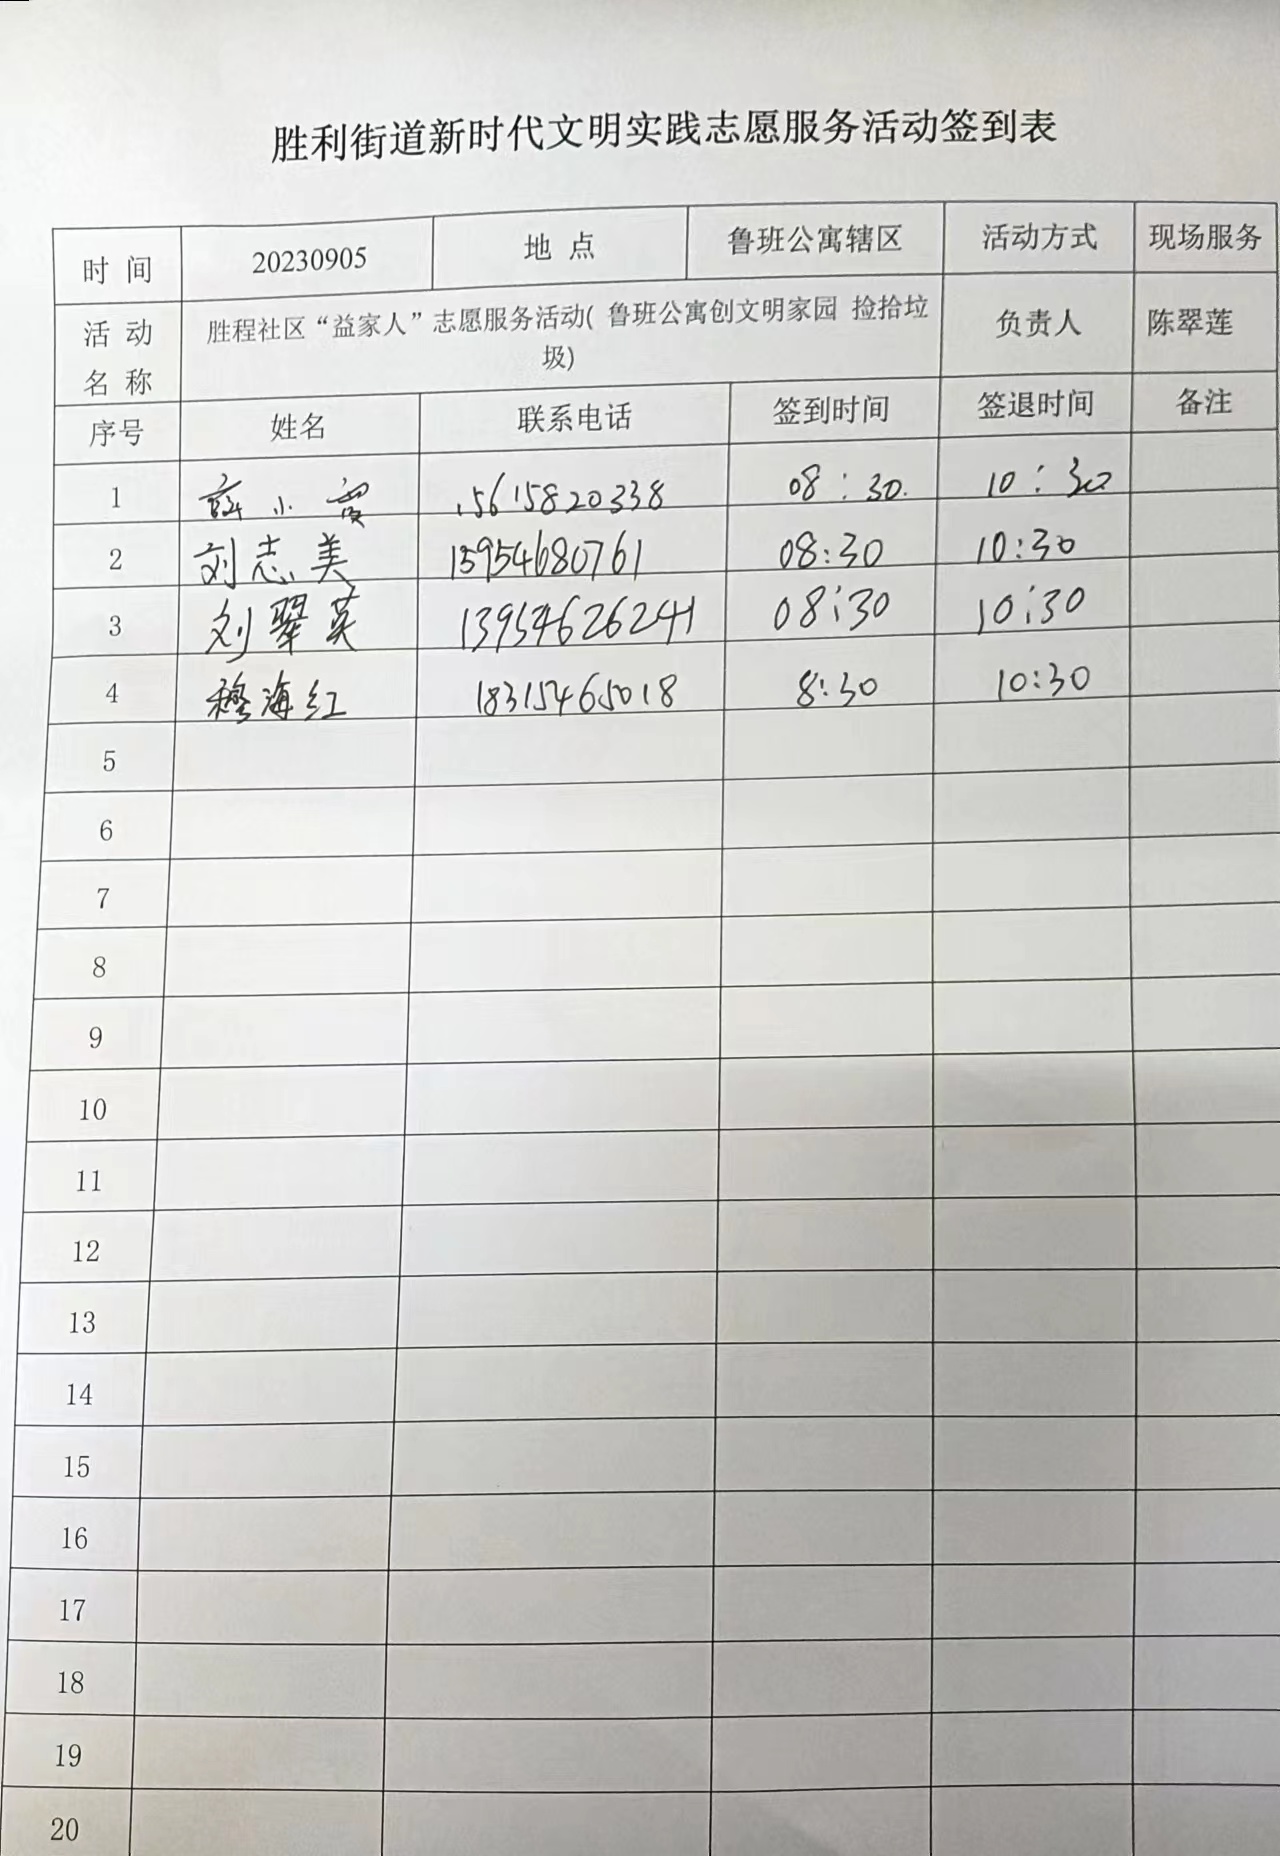 胜利街道新时代文明实践志愿服务活动签到表
时 间 20230905 地 点 鲁班公寓辖区 活动方式 现场服务
活 动 名 称 胜程社区“益家人”志愿服务活动( 鲁班公寓创文明家园 捡拾垃
圾) 负责人 陈翠莲
序号 姓名 联系电话 签到时间 签退时间 备注
1 薛小霞 15615820338 08:30. 10:30
2 刘志美 13954680761 08:30 10:30
3 刘翠英 13954626241 08:30 10:30
4 穆海红 18315465018 8:30 10:30
5
6
7
8
9
10
11
12
13
14
15
16
17
18
19
20